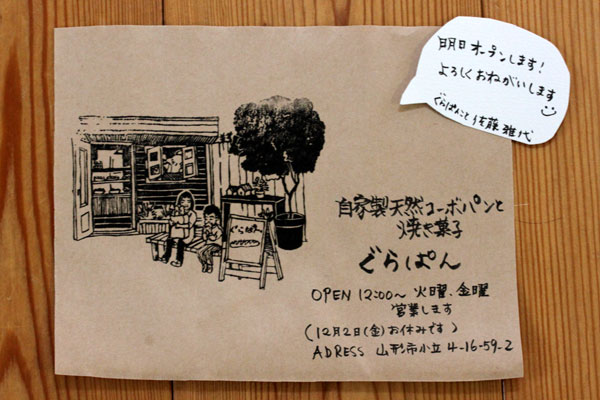 明日オープンします!
よろしくおねがいします
ぐらぱんこと佐藤雅代
自家製天然コーボパンと
焼き菓子
ぐらぱん
OPEN 12:00〜 火曜、金曜
営業します
(12月2日(金)お休みです)
ADRESS 山形市小立 4-16-59-2
ぐらぱん